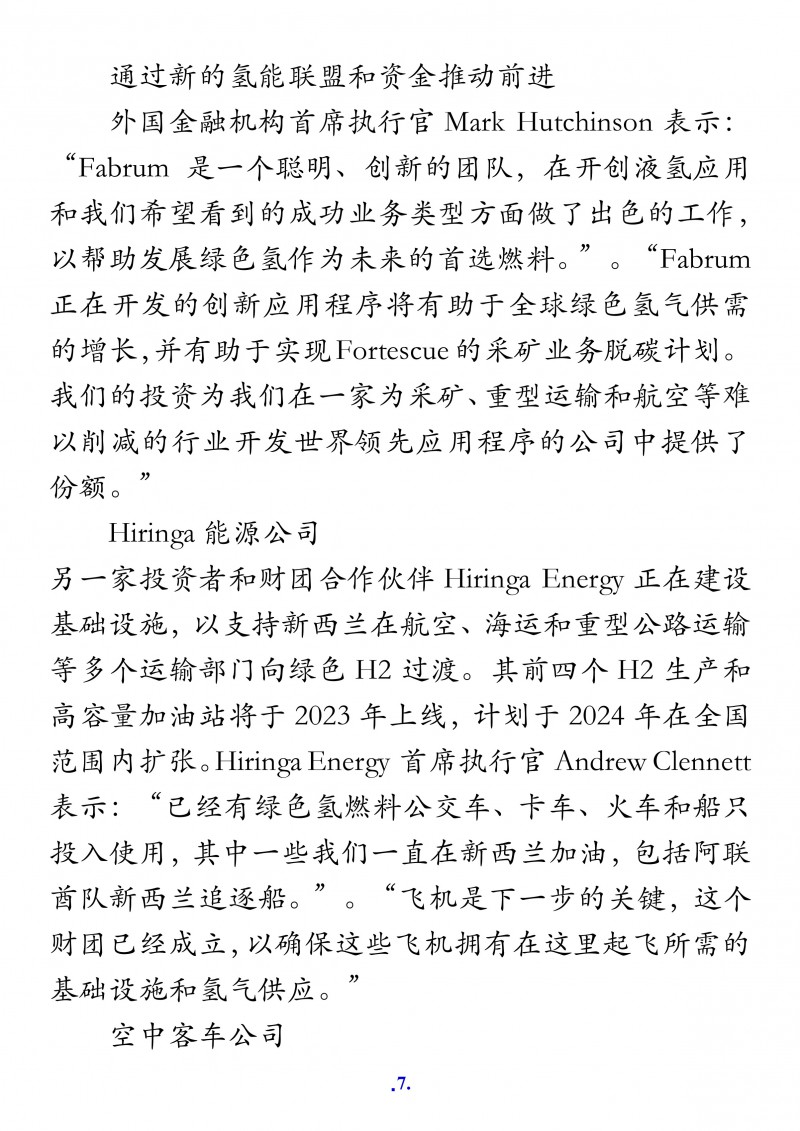 通过新的氢能联盟和资金推动前进
外国金融机构首席执行官 Mark Hutchinson 表示：
“Fabrum 是一个聪明、创新的团队，在开创液氢应用
和我们希望看到的成功业务类型方面做了出色的工作，
以帮助发展绿色氢作为未来的首选燃料。”。“Fabrum
正在开发的创新应用程序将有助于全球绿色氢气供需
的增长，并有助于实现 Fortescue 的采矿业务脱碳计划。
我们的投资为我们在一家为采矿、重型运输和航空等难
以削减的行业开发世界领先应用程序的公司中提供了
份额。”
Hiringa 能源公司
另一家投资者和财团合作伙伴 Hiringa Energy 正在建设
基础设施，以支持新西兰在航空、海运和重型公路运输
等多个运输部门向绿色 H2 过渡。其前四个 H2 生产和
高容量加油站将于 2023 年上线，计划于 2024 年在全国
范围内扩张。Hiringa Energy 首席执行官 Andrew Clennett
表示：“已经有绿色氢燃料公交车、卡车、火车和船只
投入使用，其中一些我们一直在新西兰加油，包括阿联
酋队新西兰追逐船。”。“飞机是下一步的关键，这个
财团已经成立，以确保这些飞机拥有在这里起飞所需的
基础设施和氢气供应。”
空中客车公司
.7.